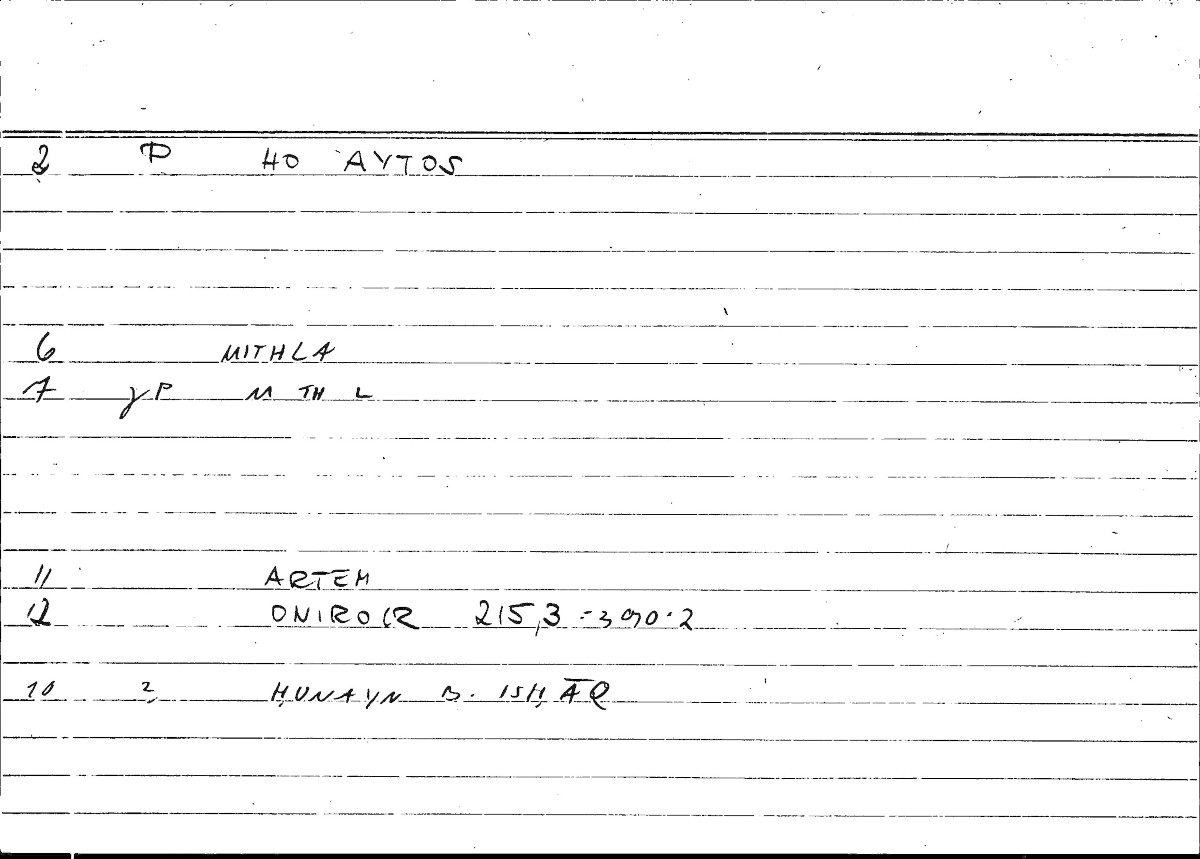 2 P HO AYTOS
6 MITHLA
7 γP M TH L
11 ARTEM
12 ONIROCR 215,3 = 390.2
10 2, ḤUNAYN B. ISḤĀQ